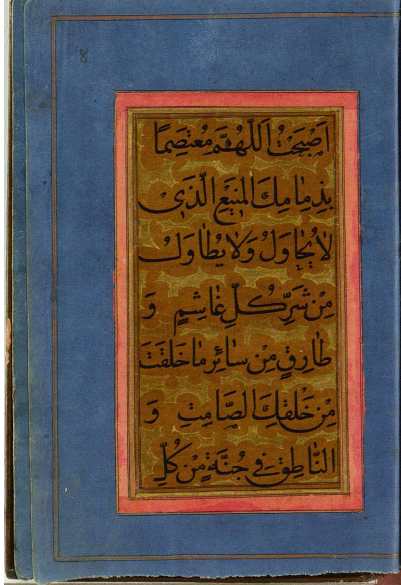 ٨
اَصْبَحْتُ اَللّٰهُمَّ مُعْتَصِمًا
بِذِمٰامِكَ الْمَنيَعِ الَّذَى
لاٰ يُحٰاوَلُ وَلاٰ يُطٰاوَلُ
مِنْ شَرِّ كُلِّ غٰاشِمٍ وَ
طٰارِقٍ مِنْ سٰائِرِ مٰا خَلَقْتَ
مِنْ خَلْقِكَ الصّٰامِتِ وَ
النّٰاطِقِ فِى جُنَّةٍ مِنْ كُلِّ